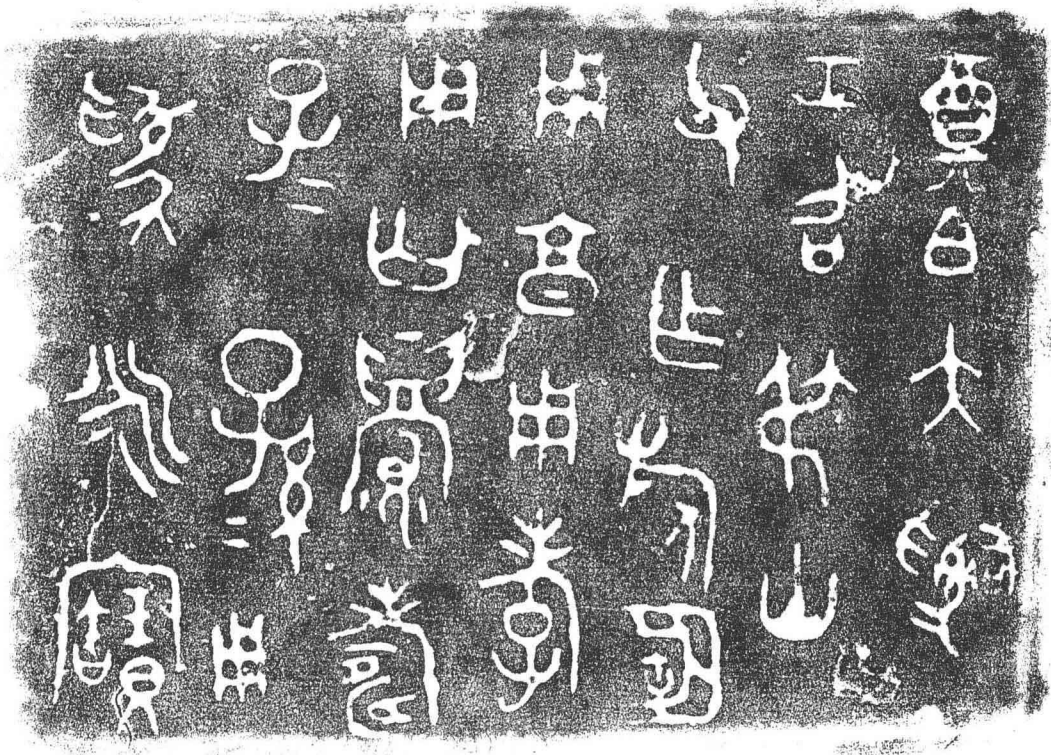 奠白大𤔲
工召弔山
父乍旅𠤳
用亯用孝
用匄眉壽
子=孫=用
爲永寶